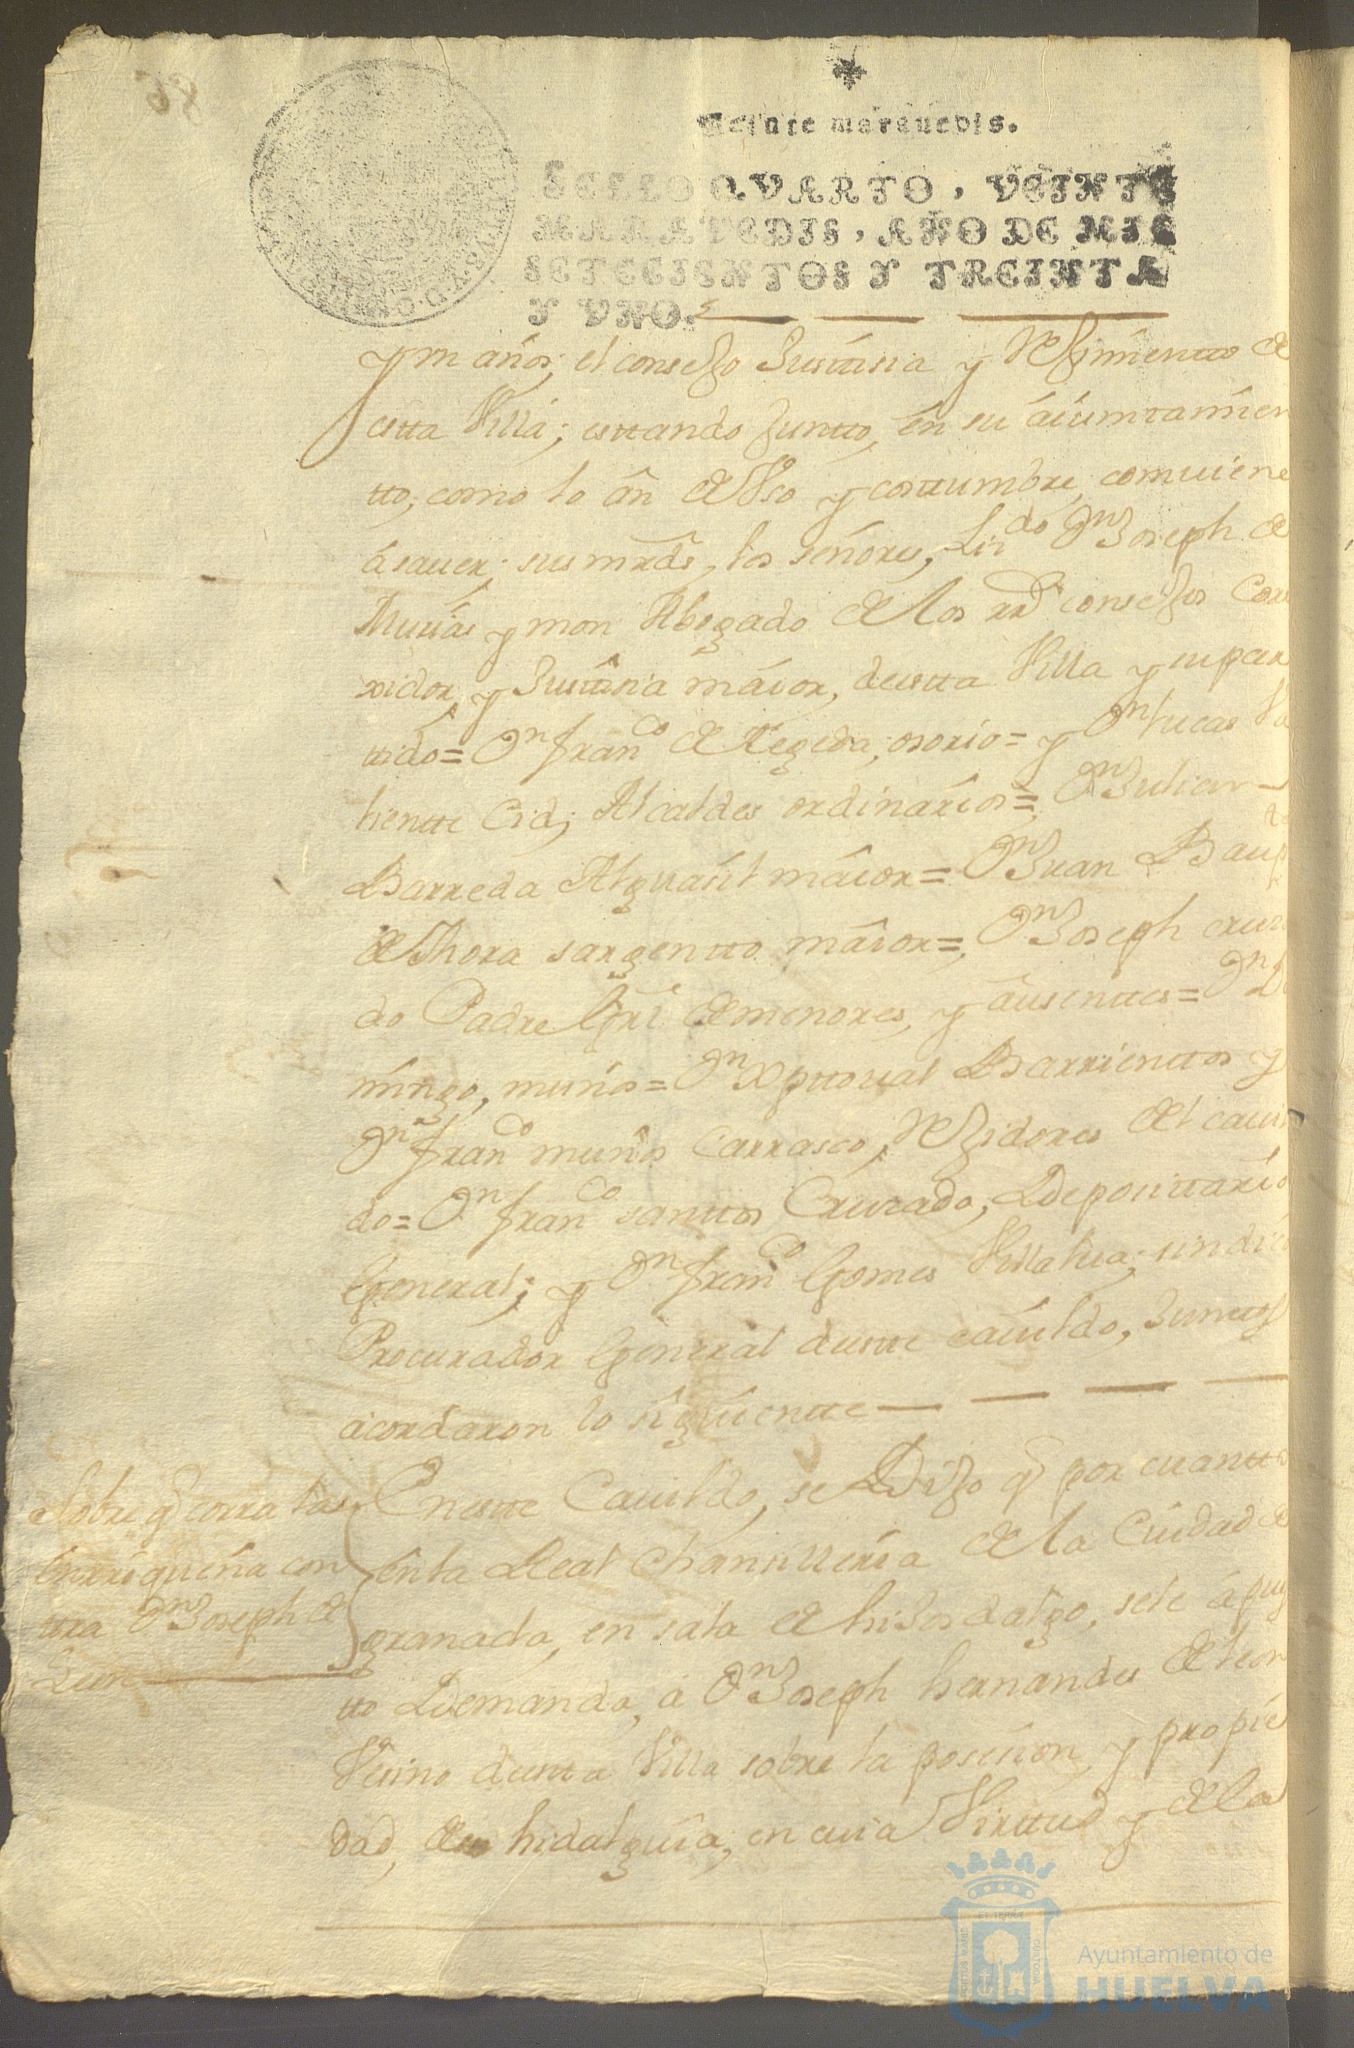 Veinte marauedis.
SELLO QVARTO, VEINTE
MARAVEDIS, AÑO DE MIL
SETECIENTOS Y TREINTA
Y VNO.
y un años; el consejo Justisia y Rejimientto de
estta Villa; esttando Juntto, en su áiuntamien
tto, como lo án de Vso y costtumbre, comuiene
á sauer; sus mrds, los señores, Lizdo Dn Joseph de
Murías y mon Abogado de los rrs consejos Corre
xidor, y Justisia máior, deestta Villa y su par
tido= Dn Franco de Tegeda, osorio= y Dn Lucas Va
lientte Cid; Alcaldes ordinarios= Dn Julian
Barreda Alguásil máior= Dn Juan Baup
de Thora sargentto máior= Dn Joseph cruza
do Padre Genrl de menores, y ausenttes= Dn Do
mingo, muños= Dn Xpttoual Barrienttos y
Dn Franco muños Carrasco, Rejidores del cauil
do= Dn Franco santtos Cruzado, Deposittario
General; y Dn Franco Gomes Villalua; sindico
Procurador General destte cáuildo, Junttos
ácordaron lo siguientte
Sobre q corra las
enrriqueña con
ttra Dn Joseph de
Leon
En estte Cauildo, se Dijo q por cuantto
en la Real Chansilleria de la Ciudad de
granada, en sala de hijosdalgo, se le á pues
tto Demanda, a Dn Joseph hernandes de leon
Vesino destta Villa sobre la posesion, y propie
dad, de su hidalguia, en cuia Virttud y de la
Ayuntamiento de
HUELVA